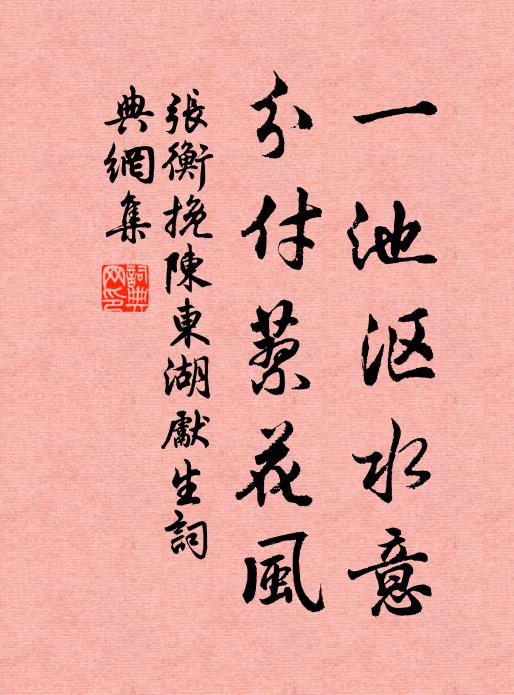 一池沤水意
分付花風
張衡挽陳東湖獻生詞
典網集
詞典
网印